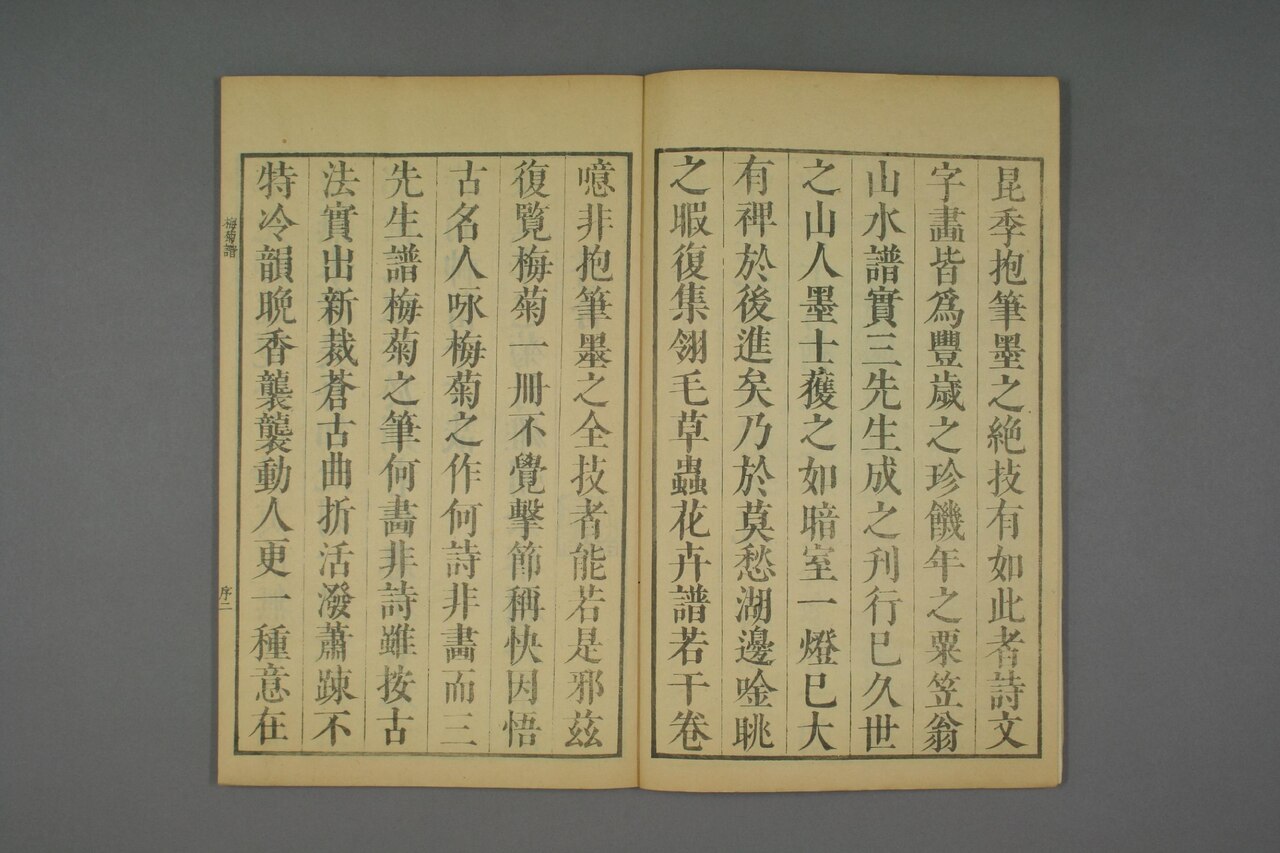 昆季抱筆墨之絶技有如此者詩文
字畫皆爲豐歲之珍饑年之粟笠翁
山水譜實三先生成之刋行巳久世
之山人墨士蒦之如暗室一燈巳大
有裨於後進矣乃於莫愁湖邊唫眺
之暇復集翎毛草蟲花卉譜若干卷
噫非抱筆墨之全技者能若是邪兹
復覽梅菊一冊不覺擊節稱快因悟
古名人咏梅菊之作何詩非畵而三
先生譜梅菊之筆何畵非詩雖按古
法實出新裁蒼古曲折活潑蕭踈不
特冷韻晩香襲襲動人更一種意在
梅菊譜
序二